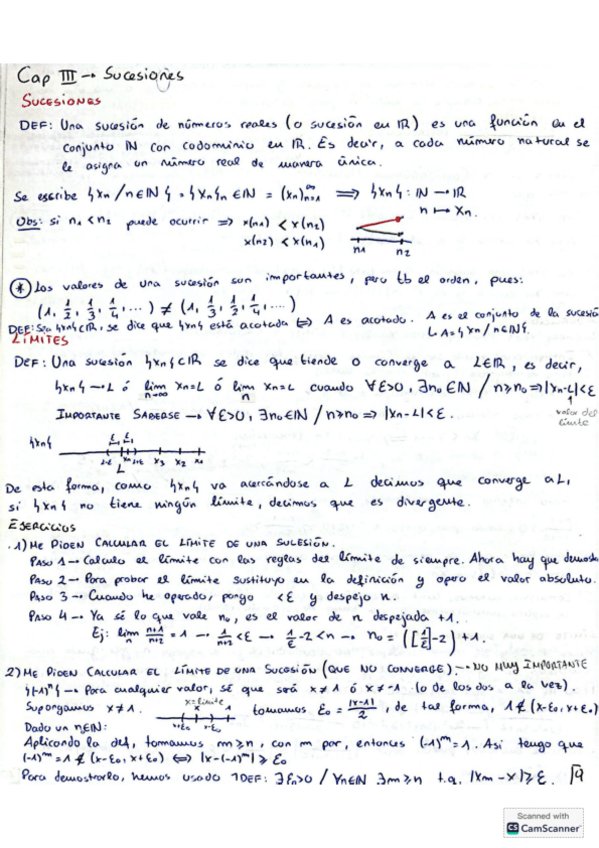 Cap III → Sucesiones
SUCESIONES
DEF: Una sucesión de números reales (o sucesión en IR) es una función en el
conjunto IN con codominio en IR. Es decir, a cada número natural se
le asigna un número real de manera única.
Se escribe {xn / n∈IN} = {Xn}n∈IN = (xn)∞n=1 ⟹ {xn}: IN → IR
n ↦ Xn.
Obs: si n1 < n2 puede ocurrir ⇒ x(n1) < x(n2)
x(n2) < x(n1)
n1 n2
* Los valores de una sucesión son importantes, pero tb el orden, pues:
(1, 1/2, 1/3, 1/4, ...) ≠ (1, 1/3, 1/2, 1/4, ...)
DEF: Sea {xn}⊂IR, se dice que {xn} está acotada ⇔ A es acotado. A es el conjunto de la sucesió
A = {xn / n∈IN}.
LÍMITES
DEF: Una sucesión {xn}⊂IR se dice que tiende o converge a L∈IR, es decir,
{xn} → L ó lim n→∞ Xn=L ó lim n Xn=L cuando ∀ε>0, ∃n0∈IN / n≥n0 ⇒ |xn-L|<ε
valor del límite
IMPORTANTE SABERSE → ∀ε>0, ∃n0∈IN / n≥n0 ⇒ |xn-L|<ε.
{xn}
ε ε
L x3 x2 x1
De esta forma, como {xn} va acercándose a L decimos que converge a L,
si {xn} no tiene ningún límite, decimos que es divergente.
EJERCICIOS
1) ME PIDEN CALCULAR EL LÍMITE DE UNA SUCESIÓN.
PASO 1 → Calculo el límite con las reglas del límite de siempre. Ahora hay que demosta
PASO 2 → Para probar el límite sustituyo en la definición y opero el valor absoluto.
PASO 3 → Cuando he operado, pongo <ε y despejo n.
PASO 4 → Ya sé lo que vale n0, es el valor de n despejada +1.
Ej: lim n n+1/n+2 = 1 → 1/n+2 < ε → 1/ε -2 < n → n0 = ([1/ε]-2) + 1.
2) ME PIDEN CALCULAR EL LÍMITE DE UNA SUCESIÓN (QUE NO CONVERGE). → NO MUY IMPORTANTE
{(-1)^n} → Para cualquier valor, sé que será x≠1 ó x≠-1 (o de los dos a la vez).
x=límite
Supongamos x≠1. x 1 tomamos ε0 = |x-1|/2, de tal forma, 1∉(x-ε0, x+ε0)
Dado un n∈IN:
Aplicando la def, tomamos m≥n, con m par, entonces (-1)^m = 1. Así tengo que
(-1)^m = 1 ∉ (x-ε0, x+ε0) ⇔ |x-(-1)^m| ≥ ε0
Para demostrarlo, hemos usado ¬DEF: ∃ε0>0 / ∀n∈IN ∃m≥n t.q. |xm-x|≥ε.
Scanned with
CS CamScanner